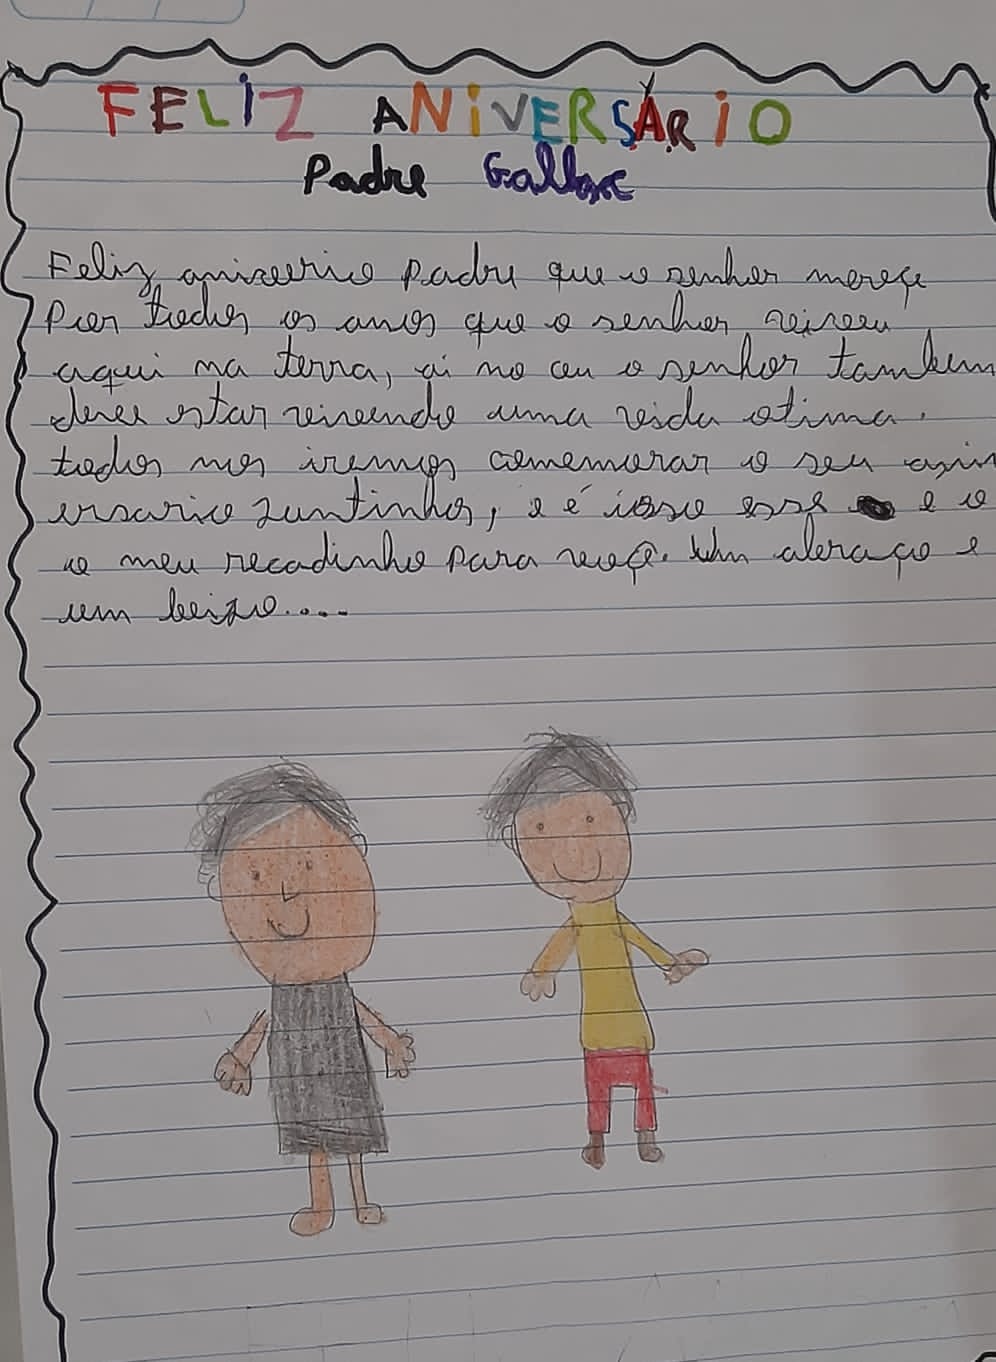 FELIZ ANIVERSÁRIO
Padre Gallone
Feliz aniveerio Padre que o senhor mereçe
Por todos os anos que o senhor viveu
aqui na terra, ai no ceu o senhor tambem
deve estar vivendo uma vida otima.
todos nos iremos comemorar o seu aniv
ersario Juntinhos, e é isso esse e o
o meu recadinho para voçê. Um abraço e
um beijo....